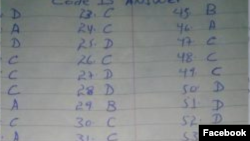 Code B Answer
D 23- C 45 B
A 24- C 46- A
D 25- D 47 C
C 26- C 48- C
C 27- D 49 C
C 28- D 50- D
A 29 B 51- D
C 30- C 52- D
A 31- C 53
Facebook